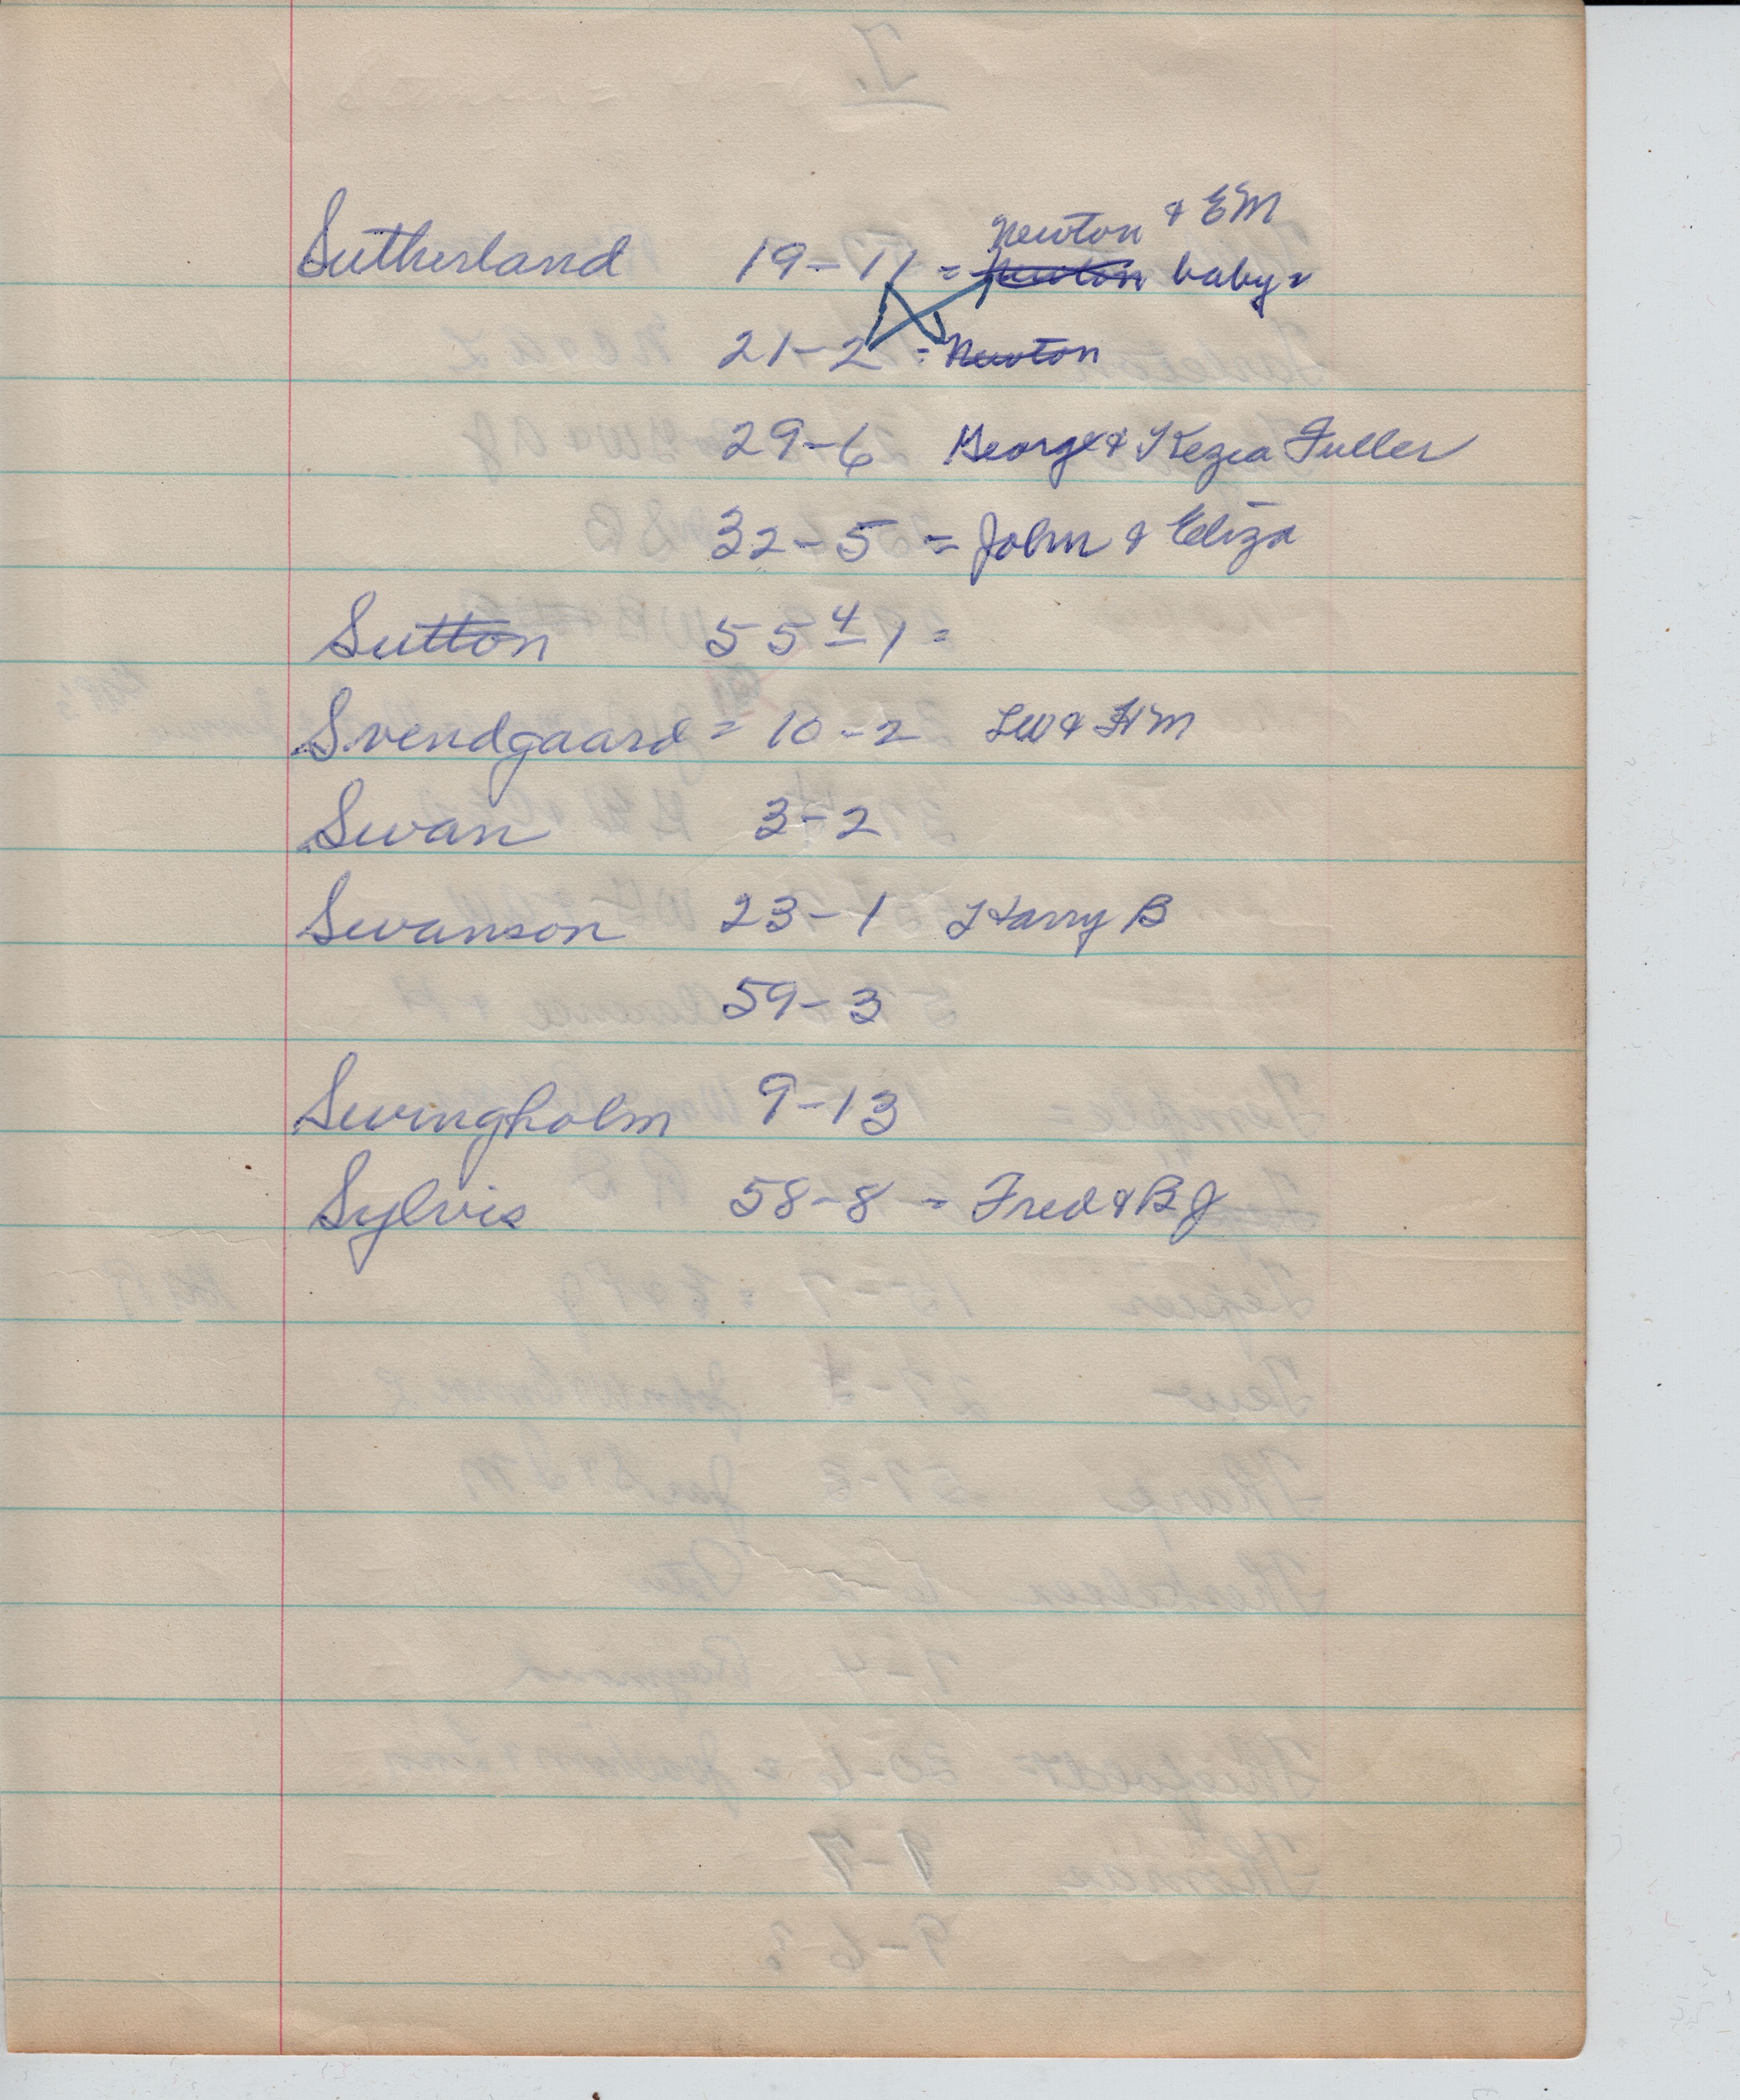 Newton & EM
Sutherland 19-11 = Newton baby
21-2 = Newton
29-6 George & Kezia Fuller
32-5 = John & Eliza
Sutton 55 4 1 =
Svendgaard = 10-2 LW & HM
Swan 3-2
Swanson 23-1 Harry B
59-3
Swingholm 9-13
Sylvis 58-8 = Fred & BJ